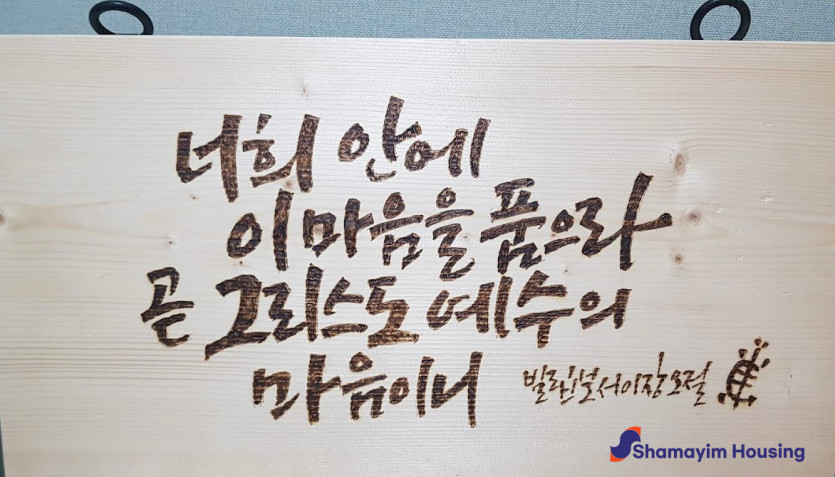 너희 안에
이 마음을 품으라
곧 그리스도 예수의
마음이니
빌립보서 이장 오절
Shamayim Housing